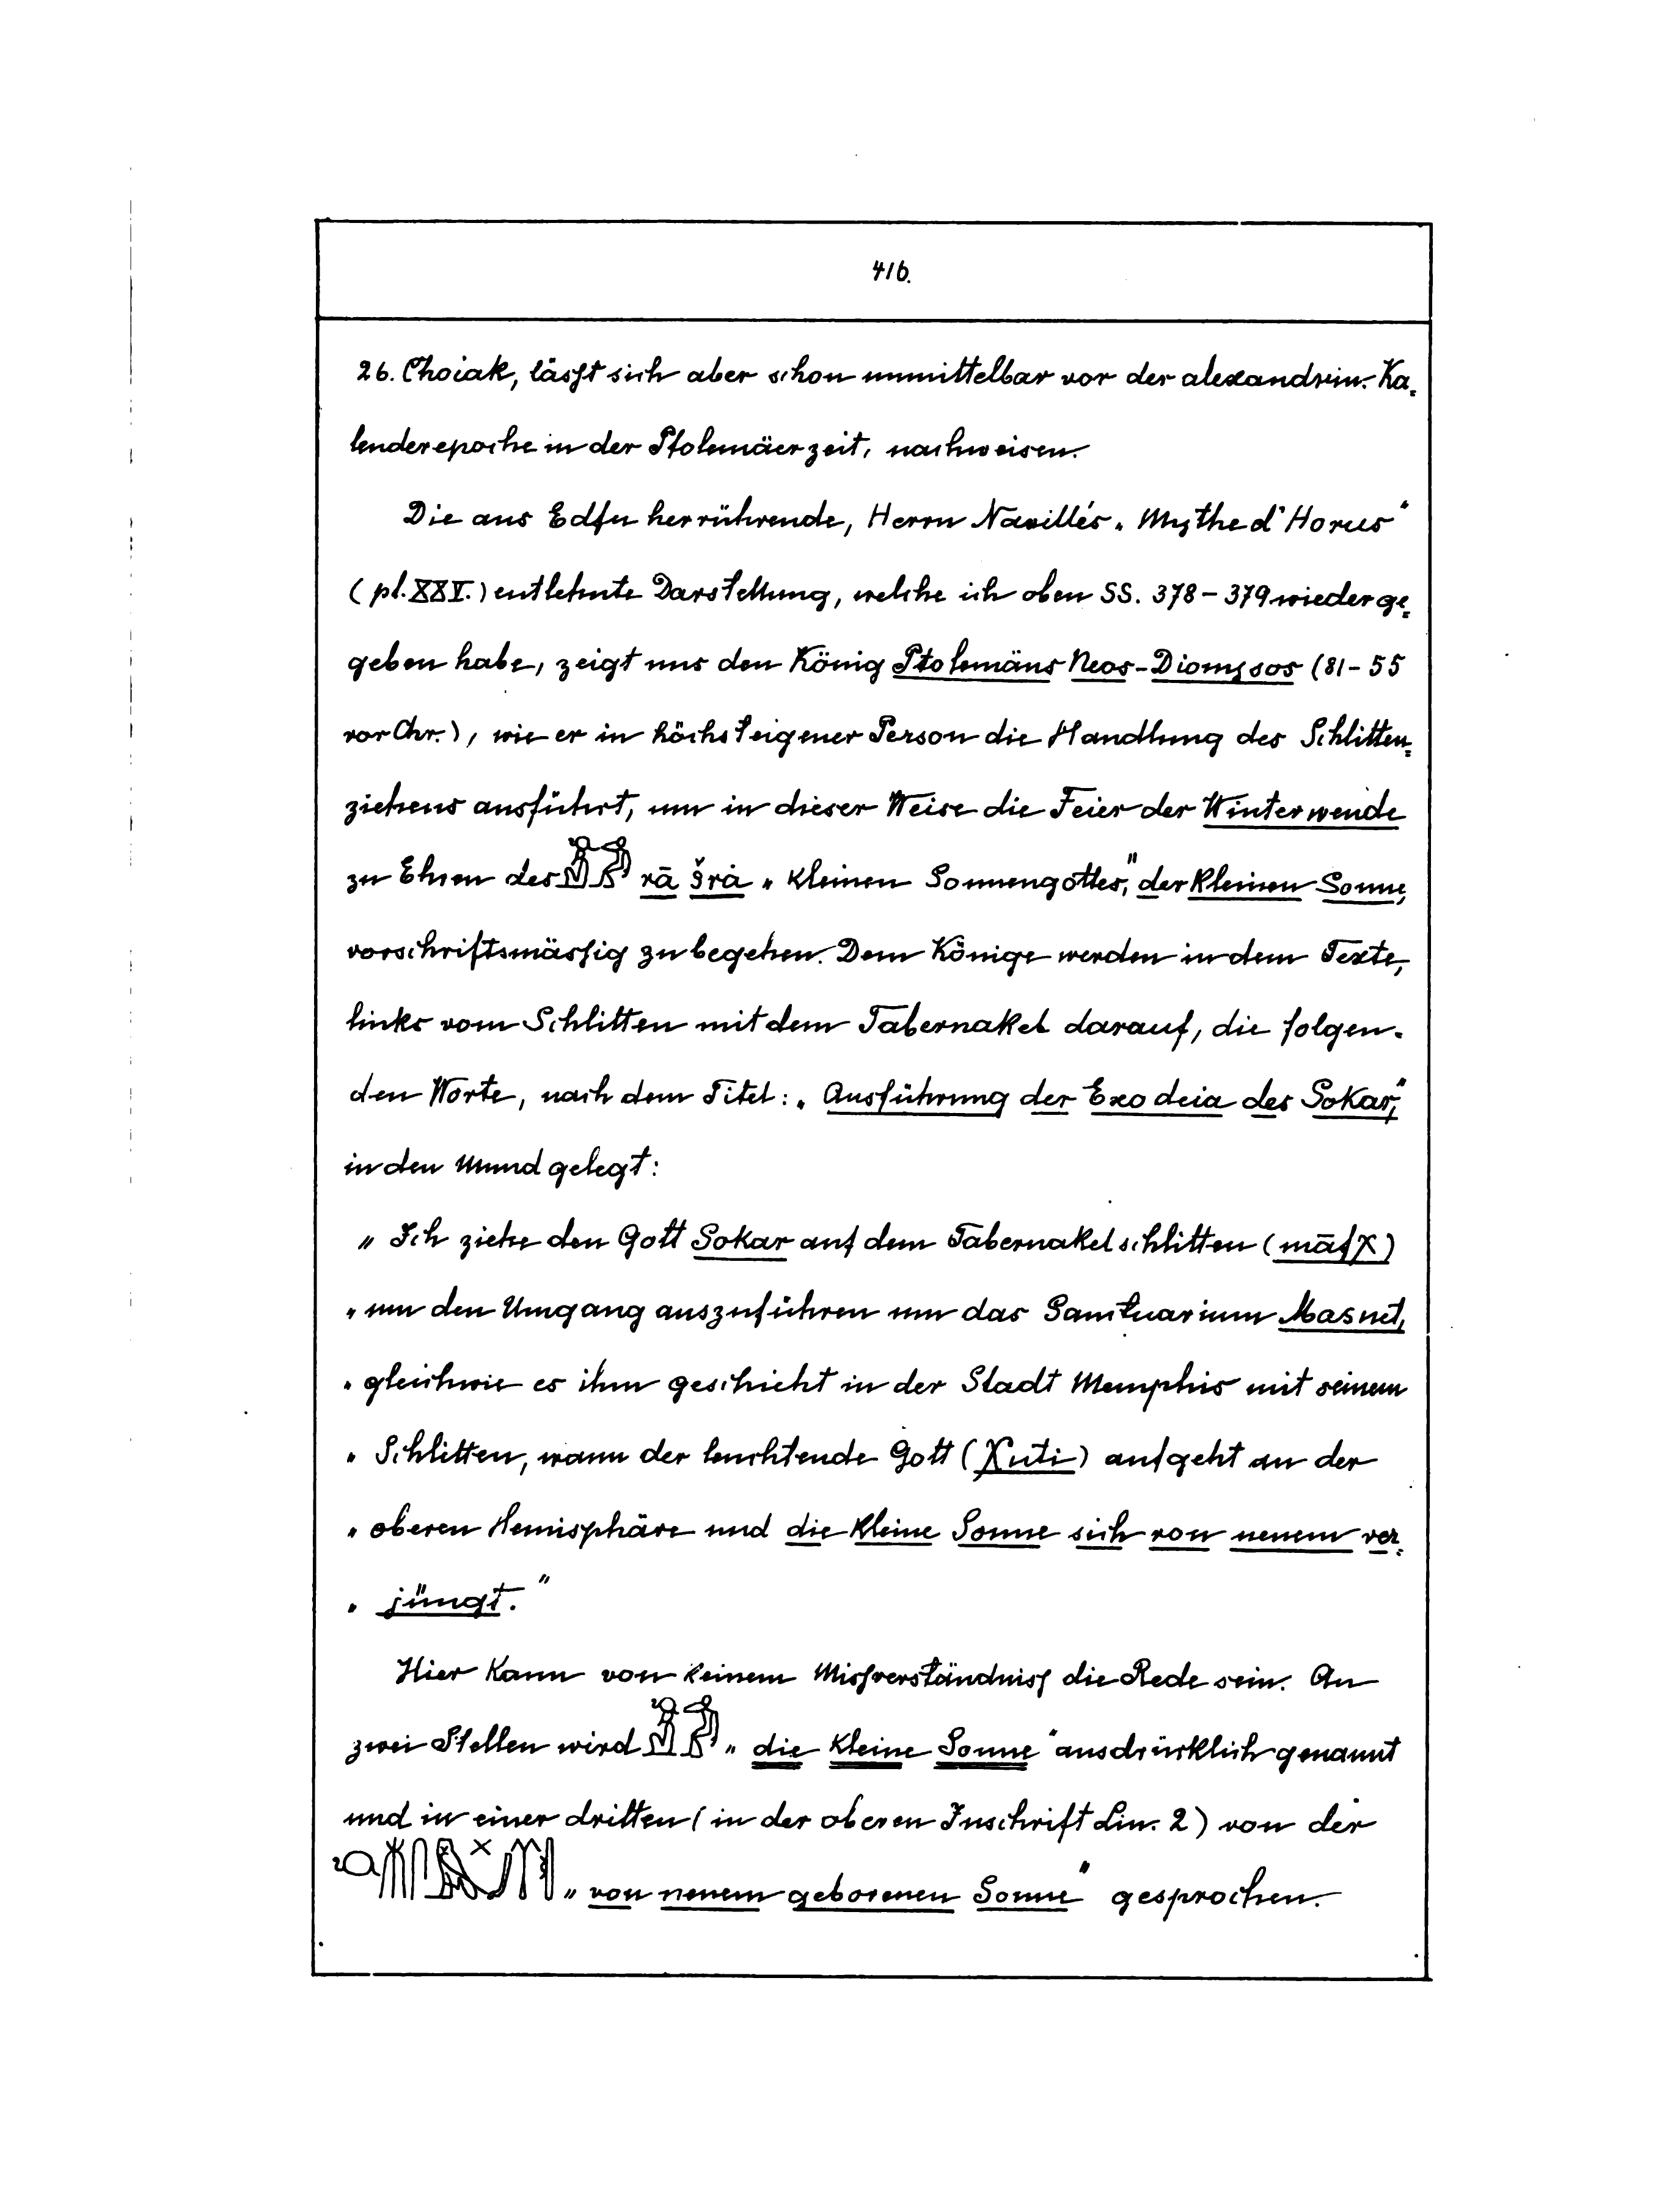 416.
26. Choiak, lässt sich aber schon unmittelbar vor der alexandrin. Ka=
lenderepoche in der Ptolemäerzeit, nachweisen.
Die aus Edfu herrührende, Herrn Naville's „Mythe d'Horus“
(pl. XXV.) entlehnte Darstellung, welche ich oben SS. 378–379 wiederge=
geben habe, zeigt uns den König Ptolemäus Neos-Dionysos (81–55
vor Chr.), wie er in höchsteigener Person die Handlung des Schlitten=
ziehens ausführt, um in dieser Weise die Feier der Winterwende
zu Ehren des rā šrȧ „kleinen Sonnengottes,“ der kleinen Sonne,
vorschriftsmässig zu begehen. Dem Könige werden in dem Texte,
links vom Schlitten mit dem Tabernakel darauf, die folgen-
den Worte, nach dem Titel: „Ausführung der Exodeia des Sokar,“
in den Mund gelegt:
„Ich ziehe den Gott Sokar auf dem Tabernakelschlitten (māfχ)
„um den Umgang auszuführen um das Sanctuarium Masnet,
„gleichwie es ihm geschieht in der Stadt Memphis mit seinem
„Schlitten, wann der leuchtende Gott (χuti) aufgeht an der
„oberen Hemisphäre und die kleine Sonne sich von neuem ver=
„jüngt.“
Hier kann von keinem Missverständniss die Rede sein. An
zwei Stellen wird „die kleine Sonne“ ausdrücklich genannt
und in einer dritten (in der oberen Inschrift Lin. 2) von der
„von neuem geborenen Sonne“ gesprochen.